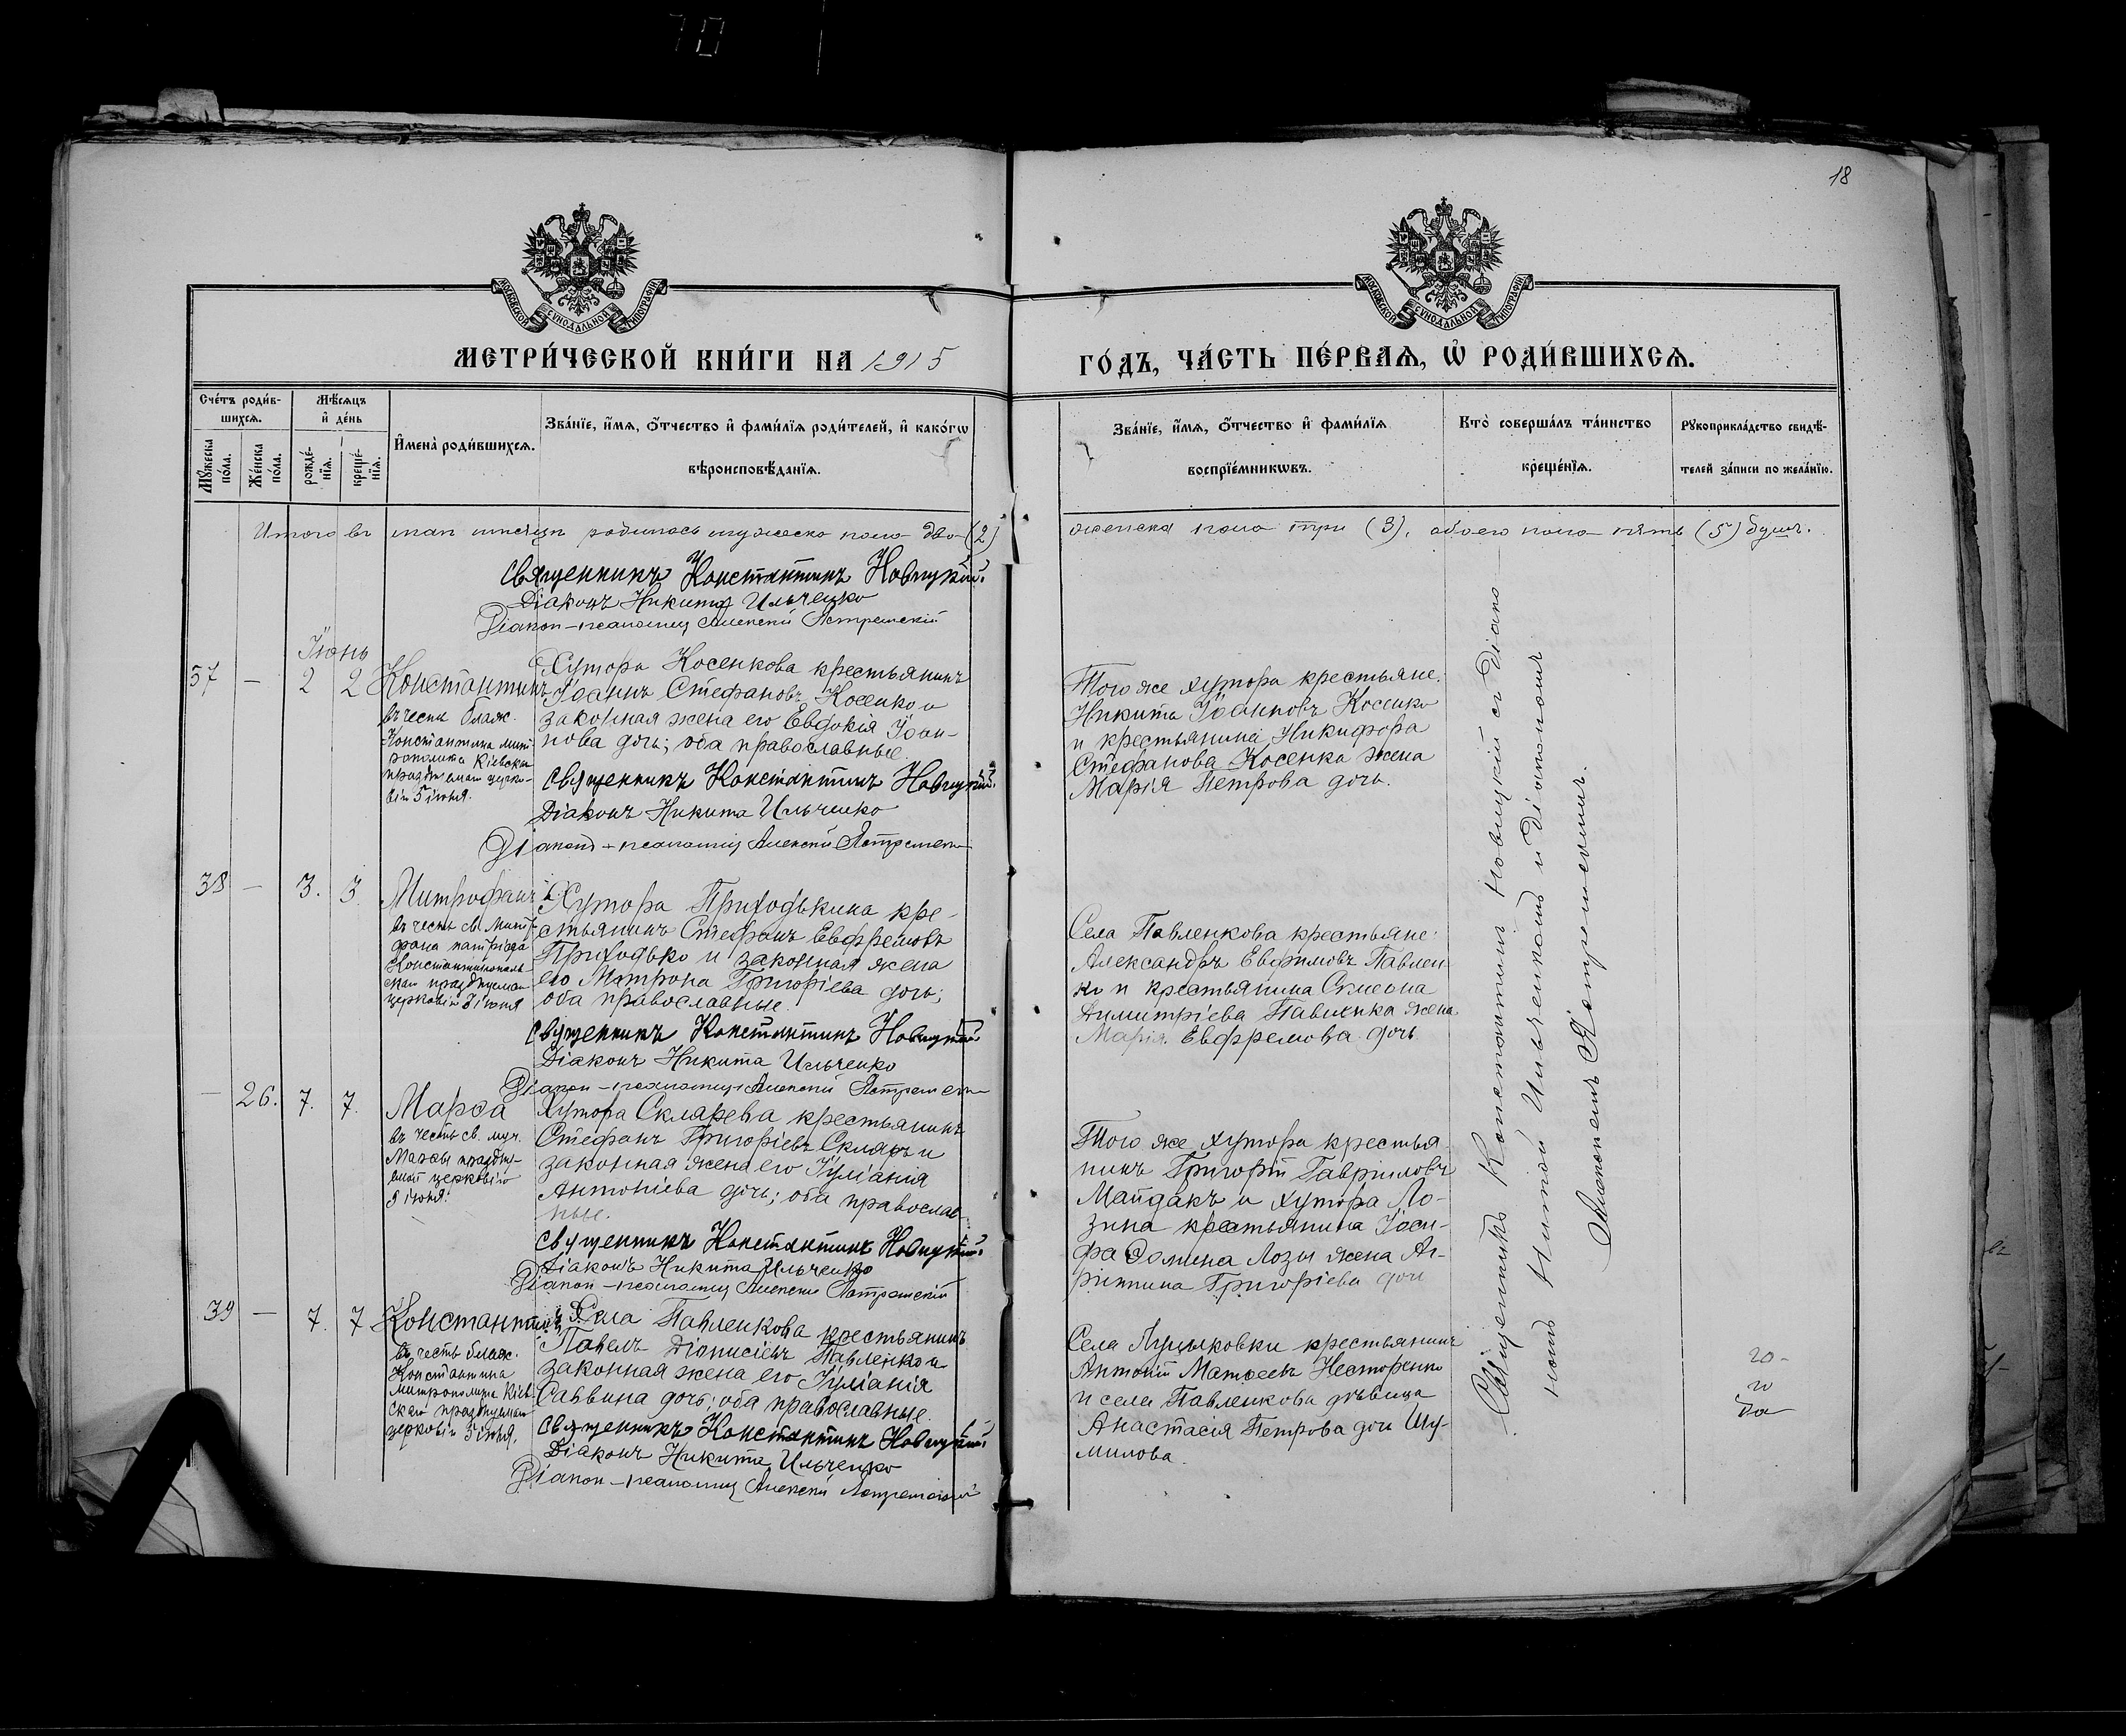 18
МОСКОВСКОЙ СУНОДАЛЬНОЙ ТИПОГРАФІИ
МОСКОВСКОЙ СУНОДАЛЬНОЙ ТИПОГРАФІИ
МЕТРИ́ЧЕСКОЙ КНИ́ГИ НА 1915
ГО́ДЪ, ЧА́СТЬ ПЕ́РВАѦ, Ѡ҆ РОДИ́ВШИХСѦ.
Сче́тъ роди́в-
шихсѧ.
Мꙋжеска по́ла.
Же́нска по́ла.
Мѣ́сѧцъ
и҆ де́нь
рожде́-
нїѧ.
креще́-
нїѧ.
И҆мена̀ роди́вшихсѧ.
Зва́нїе, и҆́мѧ, ѻ҆́тчество и҆ фами́лїѧ роди́телей, и҆ како́гѡ
вѣроисповѣ́данїѧ.
Зва́нїе, и҆́мѧ, ѻ҆́тчество и҆ фами́лїѧ
воспрїе́мникѡвъ.
Кто̀ соверша́лъ та́инство
креще́нїѧ.
Рꙋкоприкла́дство свидѣ́-
телей за́писи по жела́нїю.
Итого въ маѣ мѣсяцѣ родилось мужеска пола два (2)
женска пола три (3), обоего пола пять (5) душъ.
Священникъ Константинъ Новицкій.
Діаконъ Никита Ильченко
Діакон-псаломщ Алексій
Іюнь
37 — 2 2
Константинъ
въ честь блаж.
Константина мит-
рополита Кіевскаго
празднуемаго церко-
вію 5 іюня.
Хутора Косенкова крестьянинъ
Іоаннъ Стефановъ Косенко и
законная жена его Евдокія Іоан-
нова дочь; оба православные.
Священникъ Константинъ Новицкій.
Діаконъ Никита Ильченко
Діаконъ-псаломщ Алексій
Того же хутора крестьяне:
Никита Іоанновъ Косенко
и крестьянина Никифора
Стефанова Косенка жена
Марія Петрова дочь.
38 — 3. 3
Митрофанъ
въ честь св. Митро-
фана патріарха
Константинополь-
скаго празднуемаго
церковію 4 іюня
Хутора Приходькина кре-
стьянинъ Стефанъ Евфремовъ
Приходько и законная жена
его Матрона Григоріева дочь;
оба православные.
Священникъ Константинъ Новицкій
Діаконъ Никита Ильченко
Діакон-псаломщ Алексій
Села Павленкова крестьяне:
Александръ Евфимовъ Павлен-
ко и крестьянина Симеона
Димитріева Павленка жена
Марія Евфремова дочь
— 26. 7. 7.
Марѳа
въ честь св. муч.
Марѳы праздну-
емой церковію
9 іюня.
Хутора Склярева крестьянинъ
Стефанъ Григоріевъ Скляръ и
законная жена его Іуліанія
Антоніева дочь; оба православ-
ные.
Священникъ Константинъ Новицкій.
Діаконъ Никита Ильченко
Діакон-псаломщ Алексій
Того же хутора крестья-
нинъ Григорій Гавриловъ
Майдакъ и хутора Ло-
зина крестьянина Іоси-
фа Ѳомина Лозы жена Аг-
риппина Григоріева дочь
39 — 7. 7
Константинъ
въ честь блаж.
Константина
митрополита Кіев-
скаго празднуемаго
церковію 5 іюня.
Села Павленкова крестьянинъ
Павелъ Діонисіевъ Павленко и
законная жена его Іуліанія
Саввина дочь; оба православные.
Священникъ Константинъ Новицкій.
Діаконъ Никита Ильченко
Діакон-псаломщ Алексій
Антоній Матѳеевъ Несторенко
и села Павленкова дѣвица
Анастасія Петрова дочь Шу-
милова.
Священникъ Константинъ Новицкій съ Діако-
номъ Никитой Ильченкомъ и Діакономъ